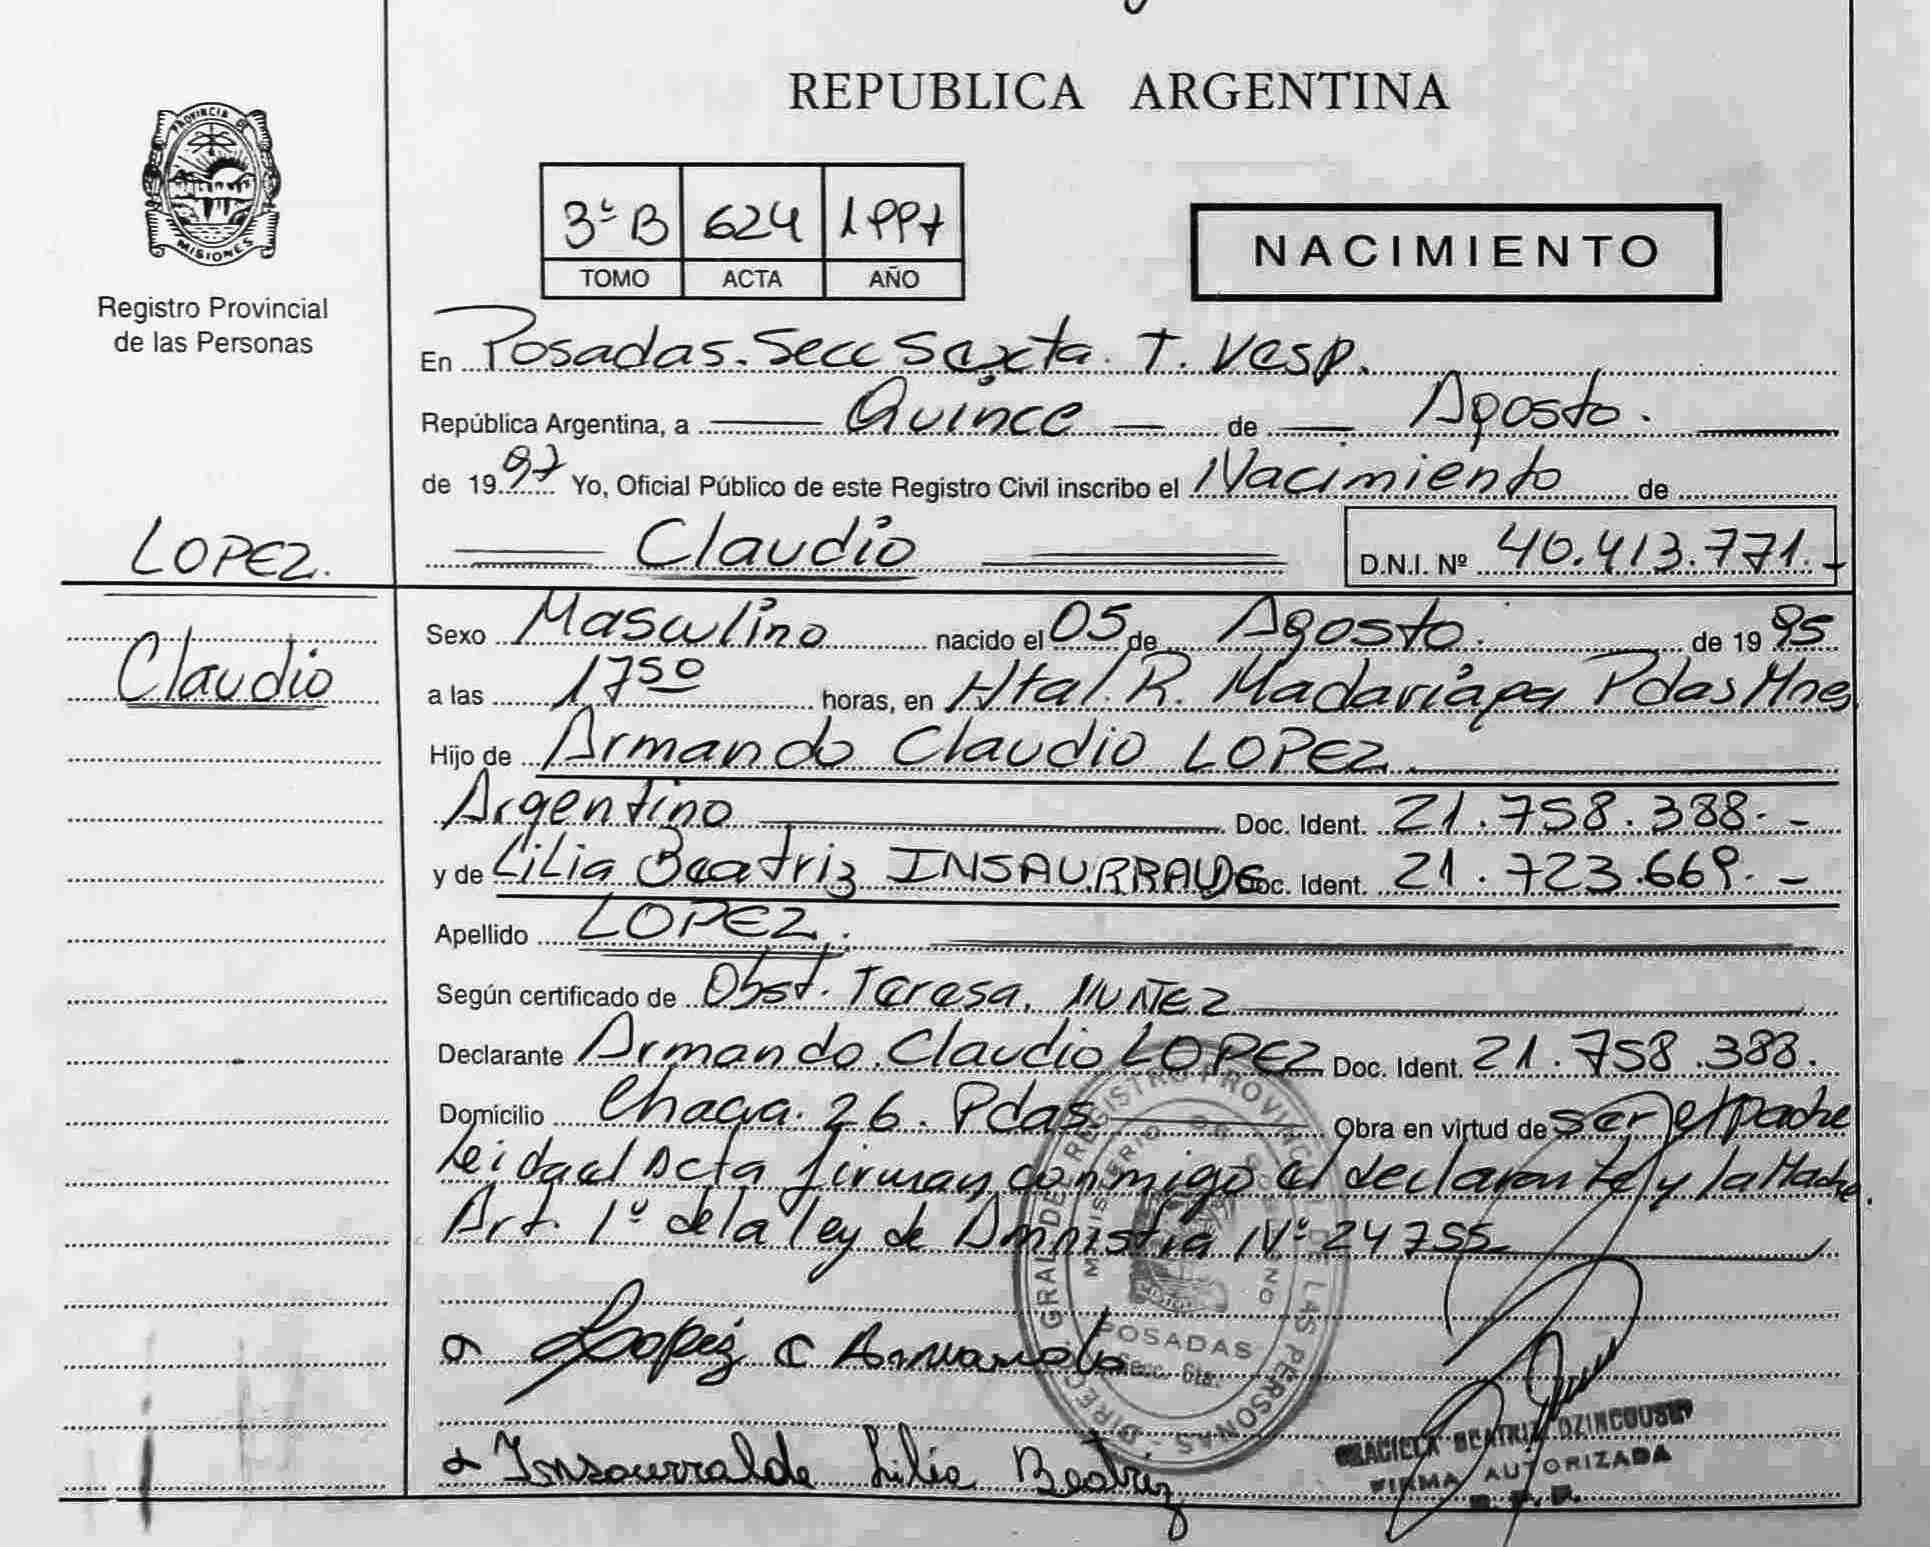 REPUBLICA ARGENTINA
PROVINCIA DE
MISIONES
Registro Provincial
de las Personas
3º B 624 1997
TOMO ACTA AÑO
NACIMIENTO
En Posadas. Secc Sexta. T. Vesp.
República Argentina, a Quince de Agosto.
de 1997 Yo, Oficial Público de este Registro Civil inscribo el Nacimiento de
LOPEZ.
Claudio D.N.I. Nº 40.413.771.-
Claudio
Sexo Masculino nacido el 05 de Agosto. de 1995
a las 17 50 horas, en Htal. R. Madariaga Pdas Mnes
Hijo de Armando Claudio LOPEZ
Argentino Doc. Ident. 21.758.388.-
y de Lilia Beatriz INSAURRALDE Doc. Ident. 21.723.669.-
Apellido LOPEZ.
Según certificado de Obst. Teresa. MUÑEZ
Declarante Armando Claudio LOPEZ Doc. Ident. 21.758.388.
Domicilio Chaca. 26. Pdas Obra en virtud de ser el padre
Leida el Acta firman conmigo el declarante y la Madre.
Art. 1º de la ley de Amnistia Nº 24755
Lopez C Armando
Insaurralde Lilia Beatriz
DIREC. GRAL DEL REGISTRO PROVINCIAL DE LAS PERSONAS
MINISTERIO DE GOBIERNO
POSADAS
Secc. 6ta.
GRACIELA BEATRIZ
FIRMA AUTORIZADA